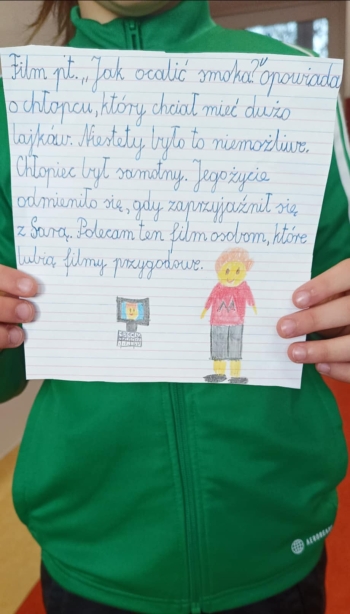 Film pt. „Jak ocalić smoka?" opowiada
o chłopcu, który chciał mieć dużo
lajków. Niestety było to niemożliwe.
Chłopiec był samotny. Jego życie
odmieniło się, gdy zaprzyjaźnił się
z Sarą. Polecam ten film osobom, które
lubią filmy przygodowe.